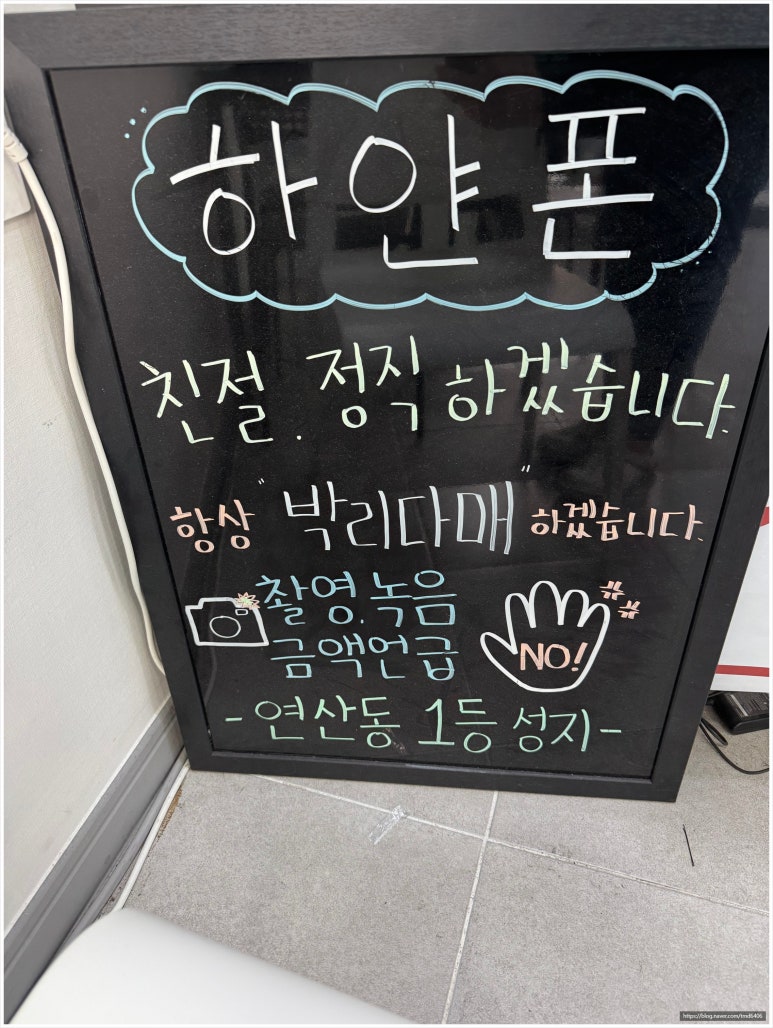 하얀폰
친절. 정직 하겠습니다.
항상 "박리다매" 하겠습니다.
촬영.녹음
금액언급
NO!
- 연산동 1등 성지 -
https://blog.naver.com/tmd6406